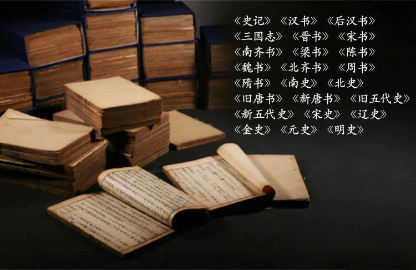 《史记》《汉书》《后汉书》
《三国志》《晋书》《宋书》
《南齐书》《梁书》《陈书》
《魏书》《北齐书》《周书》
《隋书》《南史》《北史》
《旧唐书》《新唐书》《旧五代史》
《新五代史》《宋史》《辽史》
《金史》《元史》《明史》